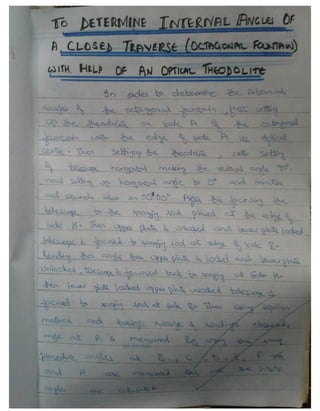 TO DETERMINE INTERNAL ANGLES OF
A CLOSED TRAVERSE (OCTAGONAL FOUNTAIN)
WITH HELP OF AN OPTICAL THEODOLITE
In order to determine the internal
angles of the octagonal fountain first setting
up the theodolite on side A of the octagonal
fountain with the edge of side A its optical
centre. Then setting up the theodolite, with setting
of telescope horizontal making the vertical angle 90°
and setting up horizontal angle to 0° and minutes
and seconds also on 00°00'. After this focusing the
telescope to the ranging rod placed at the edge of
side H. Then upper plate is unlocked and lower plate locked
telescope is focused to ranging rod at edge of side B.
Reading this angle then upper plate is locked and lower plate
unlocked, telescope is focused back to ranging at side H.
then lower plate locked upper plate unlocked telescope is
focused to ranging rod at side B. Then using repetition
method and taking average of readings
angle at A is measured. By using the same
procedure angles at B, C, D, E, F
and H are measured this the
angles are